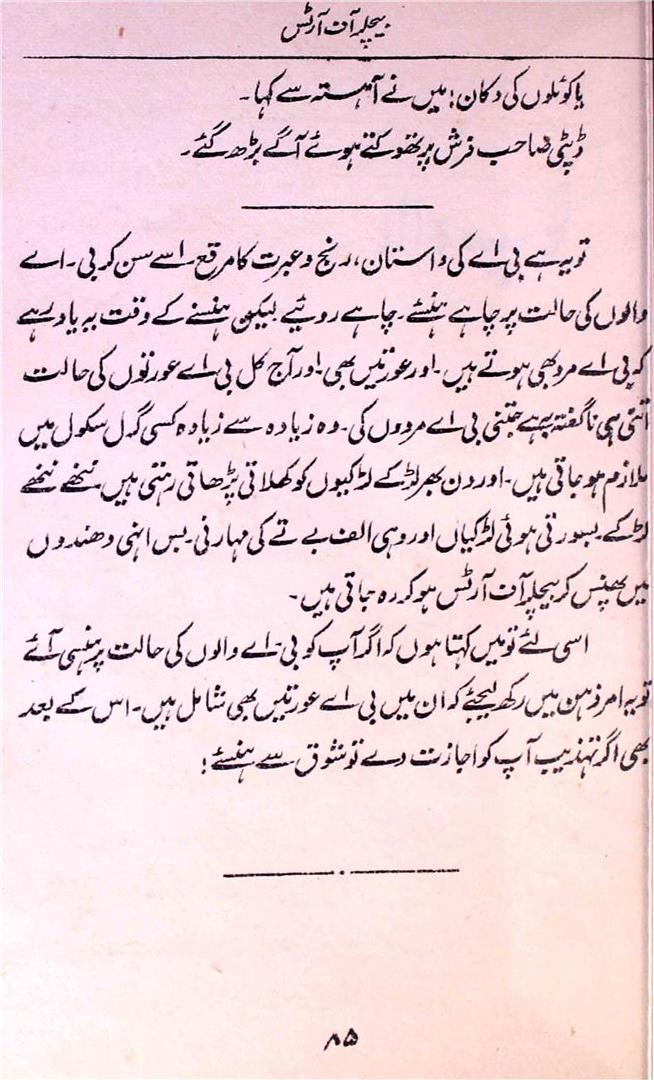 بیچلر آف آرٹس
یا کوئلوں کی دکان! میں نے آہستہ سے کہا۔
ڈپٹی صاحب فرش پر تھوکتے ہوئے آگے بڑھ گئے۔
تو یہ ہے بی اے کی داستان، رنج و عبرت کا مرقع۔ اسے سن کر بی۔ اے
والوں کی حالت پر چاہے ہنسئے۔ چاہے روئیے لیکن ہنسنے کے وقت یہ یاد رہے
کہ بی اے مرد بھی ہوتے ہیں۔ اور عورتیں بھی۔ اور آج کل بی اے عورتوں کی حالت
اتنی ہی ناگفتہ بہ ہے جتنی بی اے مردوں کی۔ وہ زیادہ سے زیادہ کسی گرل سکول میں
ملازم ہو جاتی ہیں۔ اور دن بھر لڑکے لڑکیوں کو کھلاتی پڑھاتی رہتی ہیں۔ ننھے ننھے
لڑکے۔ بسورتی ہوئی لڑکیاں اور وہی الف بے تے کی مہارنی۔ بس انہی دھندوں
میں پھنس کر بیچلر آف آرٹس ہو کر رہ جاتی ہیں۔
اسی لئے تو میں کہتا ہوں کہ اگر آپ کو بی۔ اے والوں کی حالت پر ہنسی آئے
تو یہ امر ذہن میں رکھ لیجئے کہ ان میں بی اے عورتیں بھی شامل ہیں۔ اس کے بعد
بھی اگر تہذیب آپ کو اجازت دے تو شوق سے ہنسئے!
۸۵